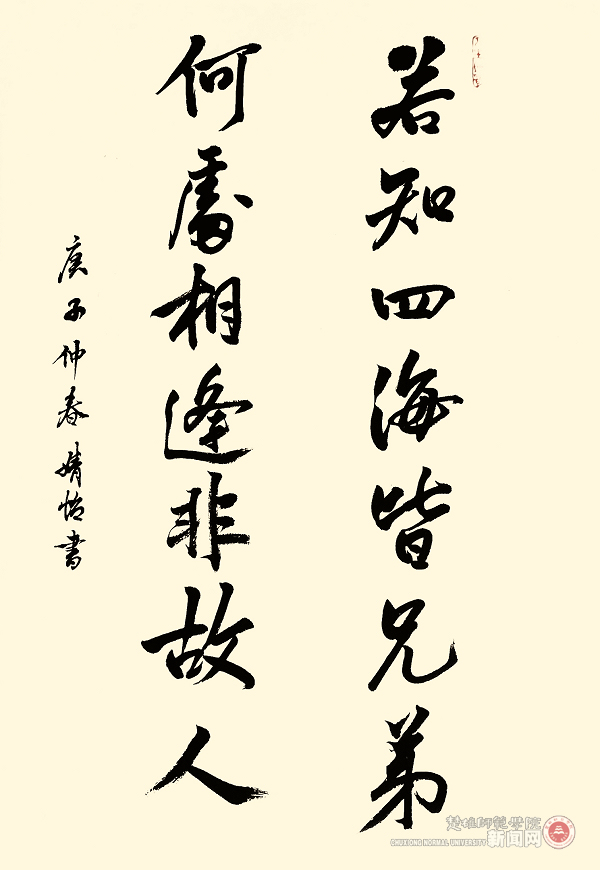 若知四海皆兄弟
何處相逢非故人
庚子仲春婧怡書
楚雄師範學院
CHUXIONG NORMAL UNIVERSITY
新闻网